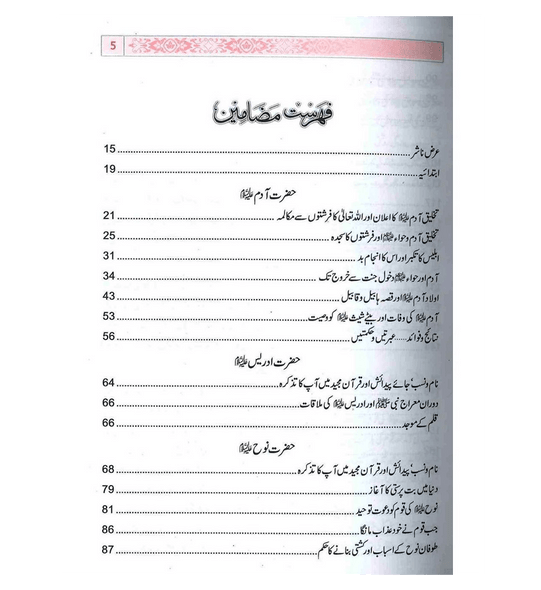 5
فہرست مضامین
عرض ناشر 15
ابتدائیہ 19
حضرت آدم علیہ السلام
تخلیق آدم علیہ السلام کا اعلان اور اللہ تعالیٰ کا فرشتوں سے مکالمہ 21
تخلیق آدم و حواء علیہما السلام اور فرشتوں کا سجدہ 25
ابلیس کا تکبر اور اس کا انجام بد 31
آدم اور حواء علیہما السلام دخول جنت سے خروج تک 34
اولاد آدم علیہ السلام اور قصہ ہابیل و قابیل 43
آدم علیہ السلام کی وفات اور بیٹے شیث علیہ السلام کو وصیت 53
نتائج و فوائد ...... عبرتیں و حکمتیں 56
حضرت ادریس علیہ السلام
نام و نسب' جائے پیدائش اور قرآن مجید میں آپ کا تذکرہ 64
دوران معراج نبی ﷺ اور ادریس علیہ السلام کی ملاقات 66
قلم کے موجد 66
حضرت نوح علیہ السلام
نام و نسب' پیدائش اور قرآن مجید میں آپ کا تذکرہ 68
دنیا میں بت پرستی کا آغاز 79
نوح علیہ السلام کی قوم کو دعوت توحید 81
جب قوم نے خود عذاب مانگا 86
طوفان نوح کے اسباب اور کشتی بنانے کا حکم 87